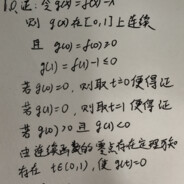 10.证:令g(x)=f(x)-x
则 g(x)在[0,1]上连续
且 g(0)=f(0)≥0
g(1)=f(1)-1≤0
若g(0)=0,则取t=0使得证
若g(1)=0,则取t=1使得证
若g(0)>0且g(1)<0
由连续函数的零点存在定理知
存在 t∈(0,1),使g(t)=0